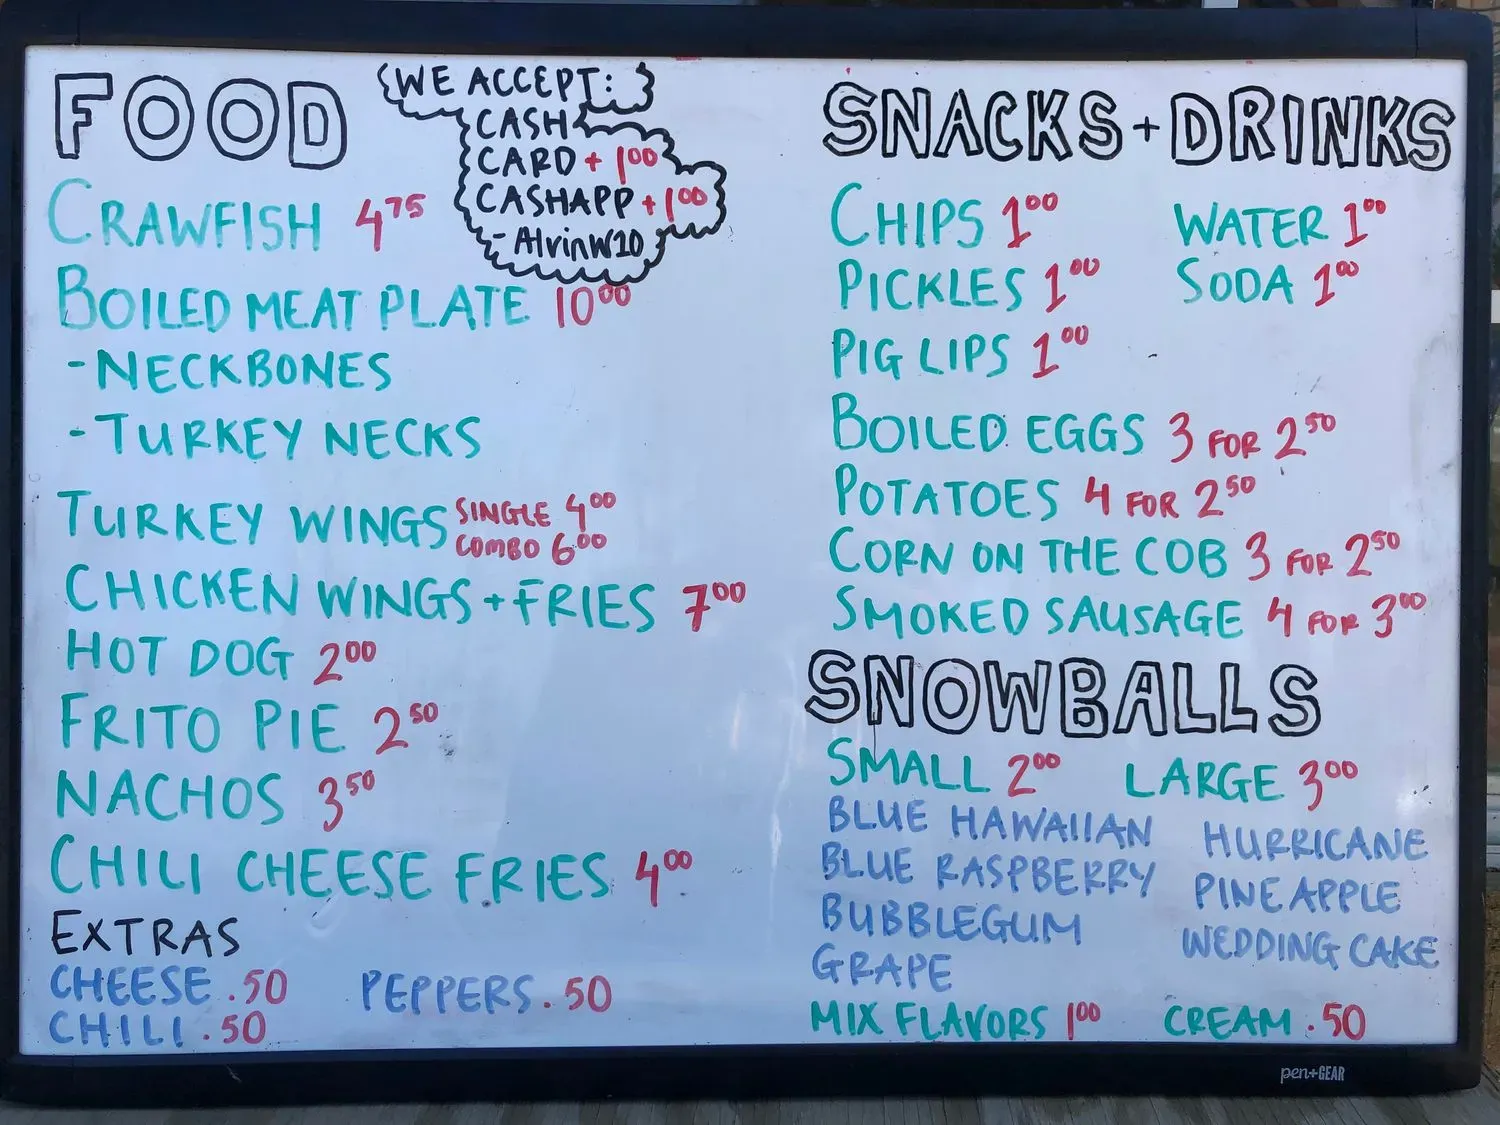 FOOD
WE ACCEPT:
CASH
CARD + 1.00
CASHAPP + 1.00
- AlvinW10
CRAWFISH 4.75
BOILED MEAT PLATE 10.00
- NECKBONES
- TURKEY NECKS
TURKEY WINGS SINGLE 4.00
COMBO 6.00
CHICKEN WINGS + FRIES 7.00
HOT DOG 2.00
FRITO PIE 2.50
NACHOS 3.50
CHILI CHEESE FRIES 4.00
EXTRAS
CHEESE .50 PEPPERS .50
CHILI .50
SNACKS + DRINKS
CHIPS 1.00 WATER 1.00
PICKLES 1.00 SODA 1.00
PIG LIPS 1.00
BOILED EGGS 3 FOR 2.50
POTATOES 4 FOR 2.50
CORN ON THE COB 3 FOR 2.50
SMOKED SAUSAGE 4 FOR 3.00
SNOWBALLS
SMALL 2.00 LARGE 3.00
BLUE HAWAIIAN HURRICANE
BLUE RASPBERRY PINEAPPLE
BUBBLEGUM WEDDING CAKE
GRAPE
MIX FLAVORS 1.00 CREAM .50
pen+GEAR